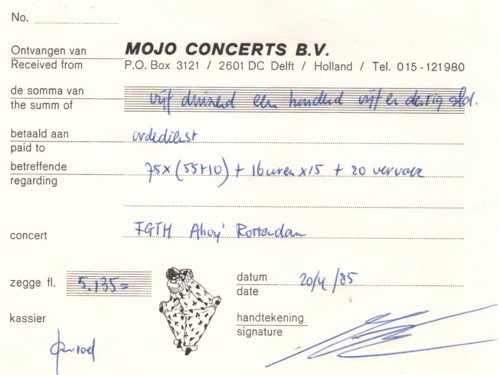 No.
Ontvangen van MOJO CONCERTS B.V.
Received from P.O. Box 3121 / 2601 DC Delft / Holland / Tel. 015-121980
de somma van
the summ of vijf duizend een honderd vijf en dertig gld.
betaald aan ordedienst
paid to
betreffende 75x(55+10) + 16uren x15 + 20 vervoer
regarding
concert FGTH Ahoy' Rotterdam
zegge fl. 5.135=
datum 20/4/85
date
kassier
handtekening
signature